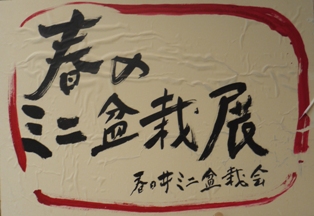 春の
ミニ盆栽展
春日井ミニ盆栽会